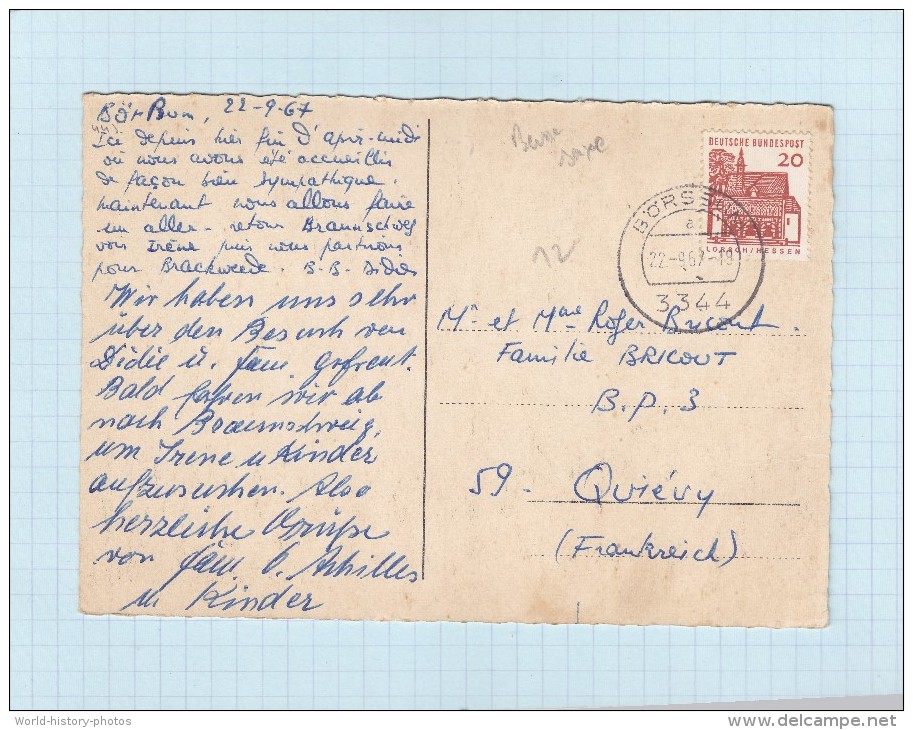 Börßum, 22-9-67
Ici depuis hier fin d'après-midi
où nous avons été accueillis
de façon bien sympathique.
Maintenant nous allons faire
un aller-retour Braunschweig
voir Irène puis nous partirons
pour Brackwede. B.B. Didier
Wir haben uns sehr
über den Besuch von
Didie u. Fam. gefreut.
Bald fahren wir ab
nach Braunschweig,
um Irene u Kinder
aufzusuchen. Also
herzliche Grüße
von Fam. O. Achilles
u Kinder
Basse
saxe
12
DEUTSCHE BUNDESPOST
20
LORSCH/HESSEN
BÖRSSUM
a
22.-9.67-18
3344
Mr et Mme Roger Bricout.
Familie BRICOUT
B.P. 3
59. Quiévy
(Frankreich)
World-history-photos
www.delcampe.net